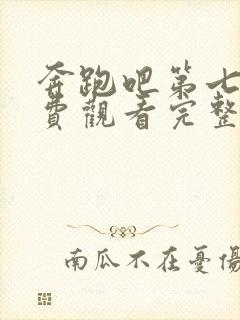 奔跑吧第七
費觀看完整
南瓜不在憂傷